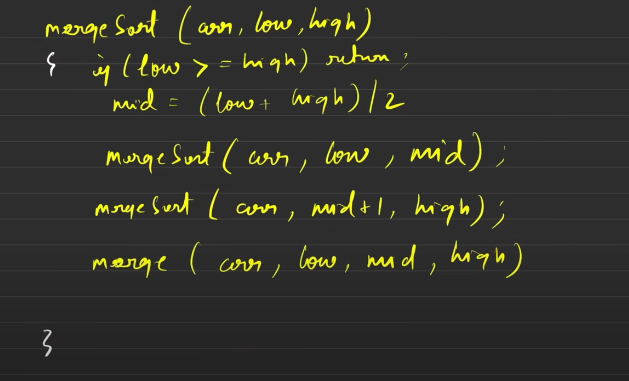 mergeSort (arr, low, high)
{ if (low >= high) return;
mid = (low + high) / 2
mergeSort (arr, low, mid);
mergeSort (arr, mid+1, high);
merge (arr, low, mid, high)
}